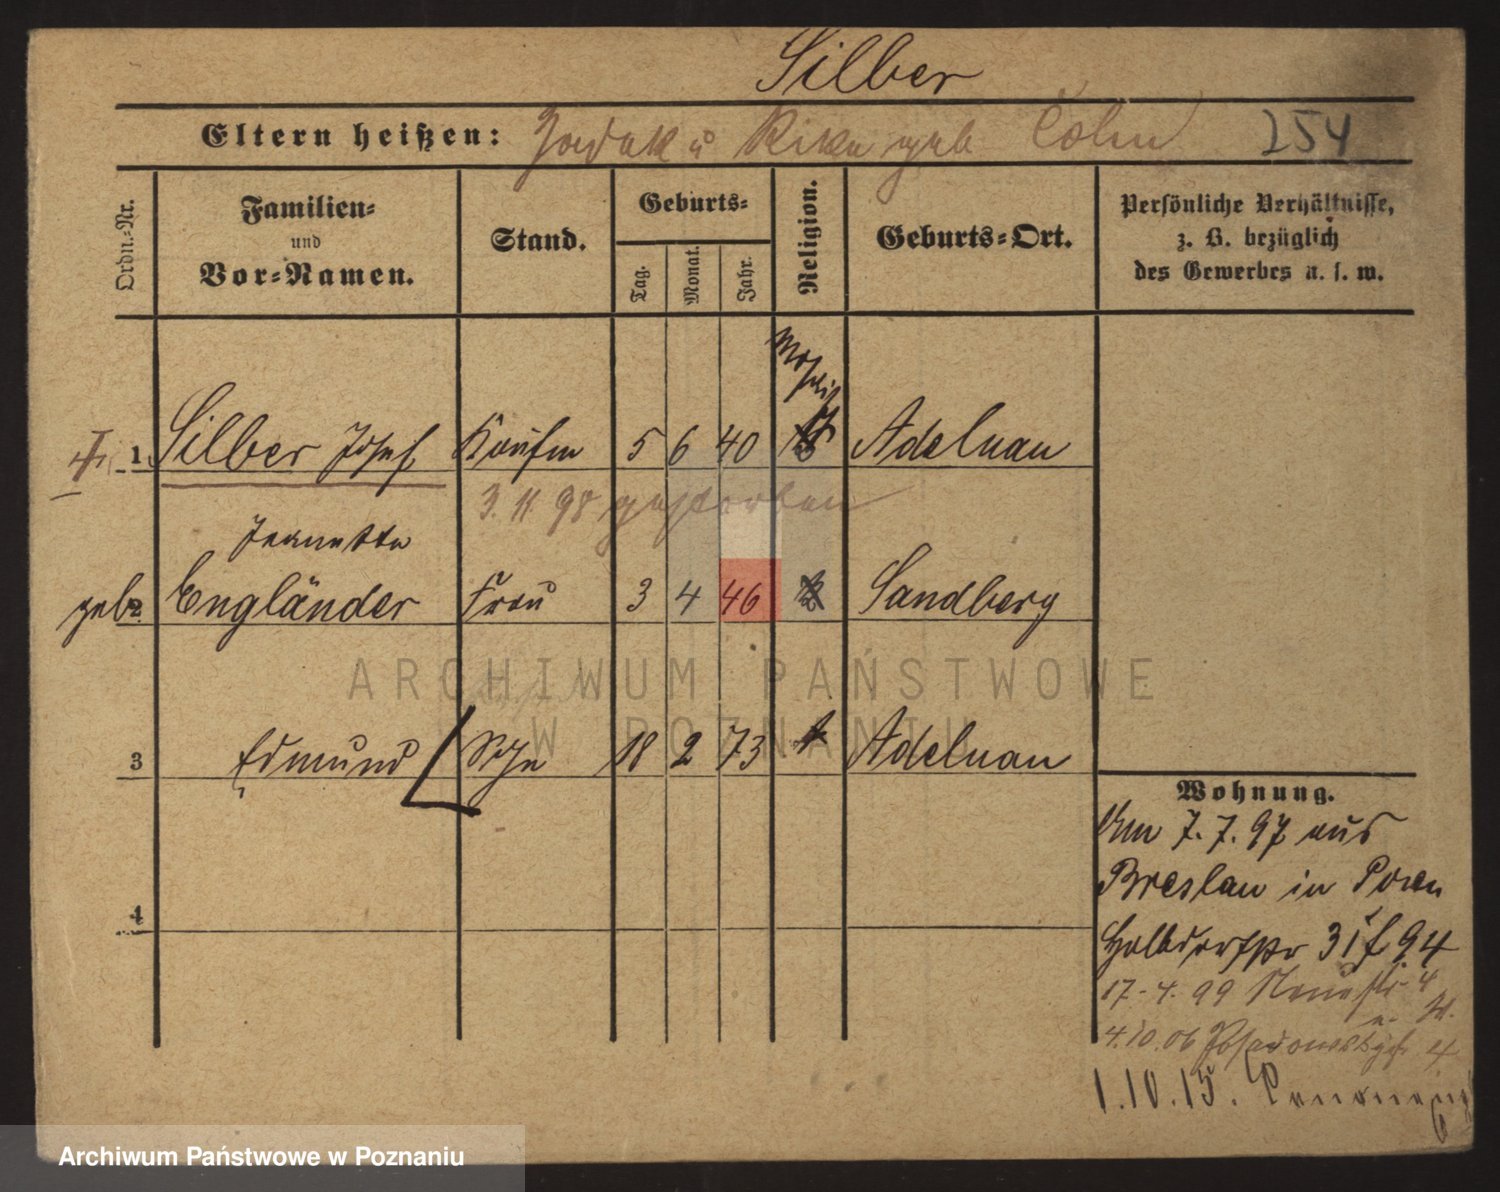 Silber
Eltern heißen: u Rika geb Cohn 254
Ordn.-Nr.
Familien-
und
Vor-Namen.
Stand.
Geburts-
Tag.
Monat.
Jahr.
Religion.
Geburts-Ort.
Persönliche Verhältnisse,
z. B. bezüglich
des Gewerbes u. s. w.
mosaisch
1 Silber Josef Kaufm 5 6 40 Adelnau
3. 11. 98 gestorben
Jeannette
geb 2 Engländer Frau 3 4 46 Sandberg
3 Edmund Sohn 18 2 73 Adelnau
4
Wohnung.
Am 7. 7. 97 aus
Breslau in Posen
Halbdorfstr 31 f 94
17. 4. 99 Neuestr 4
4. 10. 06 4
1. 10. 15.
6
ARCHIWUM PAŃSTWOWE
W POZNANIU
Archiwum Państwowe w Poznaniu